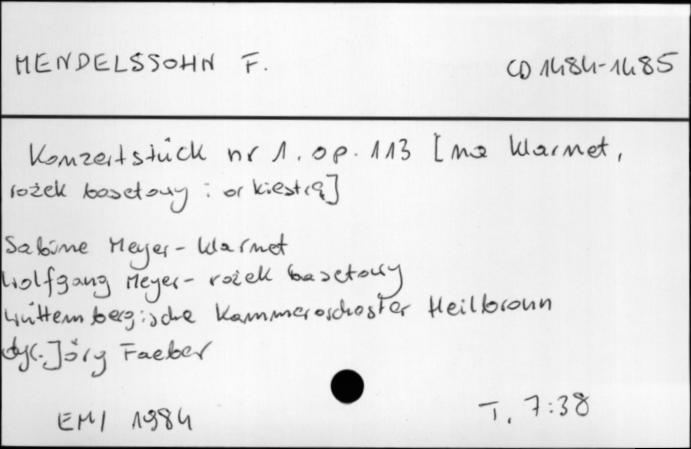 MENDELSSOHN F.
CD 1484-1485
Konzertstück nr 1. op. 113 [na klarnet,
rożek basetowy i orkiestrę]
Sabine Meyer - klarnet
Wolfgang Meyer - rożek basetowy
Württembergische Kammerorchester Heilbronn
dyr. Jörg Faeber
EMI 1984
T. 7:38